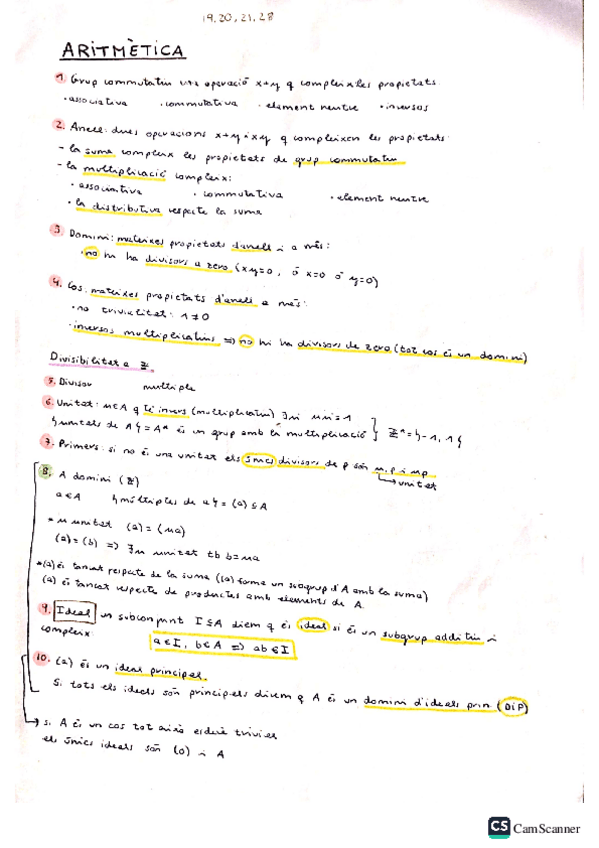 19, 20, 21, 28
ARITMÈTICA
1. Grup commutatiu una operació x+y q compleix les propietats:
· associativa · commutativa · element neutre · inversos
2. Anell: dues operacions x+y i xy q compleixen les propietats:
- la suma compleix les propietats de grup commutatiu
- la multiplicació compleix:
· associativa · commutativa · element neutre
· la distributiva respecte la suma
3. Domini: mateixes propietats d'anell i a més:
· no hi ha divisors a zero (xy=0, ó x=0 ó y=0)
4. Cos: mateixes propietats d'anell a més:
· no trivialitat: 1≠0
· inversos multiplicatius => no hi ha divisors de zero (tot cos és un domini)
Divisibilitat a ℤ
5. Divisor multiple
6. Unitat: u∈A q té invers (multiplicatiu) ∃u' uu'=1
{unitats de A} = A* és un grup amb la multiplicació } ℤ* = {-1, 1}
7. Primers: si no és una unitat els únics divisors de p són u, p i up
unitat
8. A domini (ℤ)
a∈A {múltiples de a} = (a) ⊆ A
* u unitat (a) = (ua)
(a) = (b) => ∃u unitat tb b=ua
* (a) és tancat respecte de la suma ((a) forma un subgrup d'A amb la suma)
(a) és tancat respecte de productes amb elements de A.
9. Ideal un subconjunt I⊆A diem q és ideal si és un subgrup additiu i
compleix: a∈I, b∈A => ab∈I
10. (a) és un ideal principal.
Si tots els ideals són principals diem q A és un domini d'ideals prin (DIP)
si A és un cos tot això esdevé trivial
els únics ideals són (0) i A
CS CamScanner